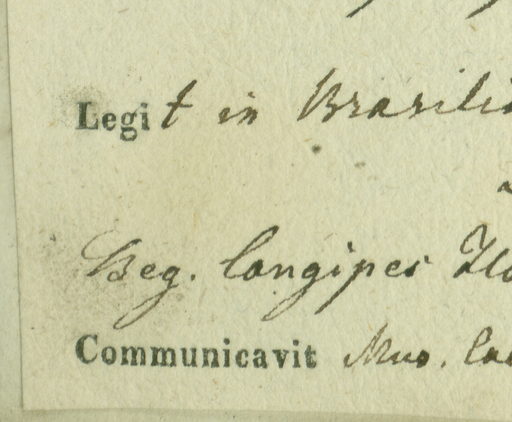 Legit in Brasilia
Beg. longipes
Communicavit Mus.